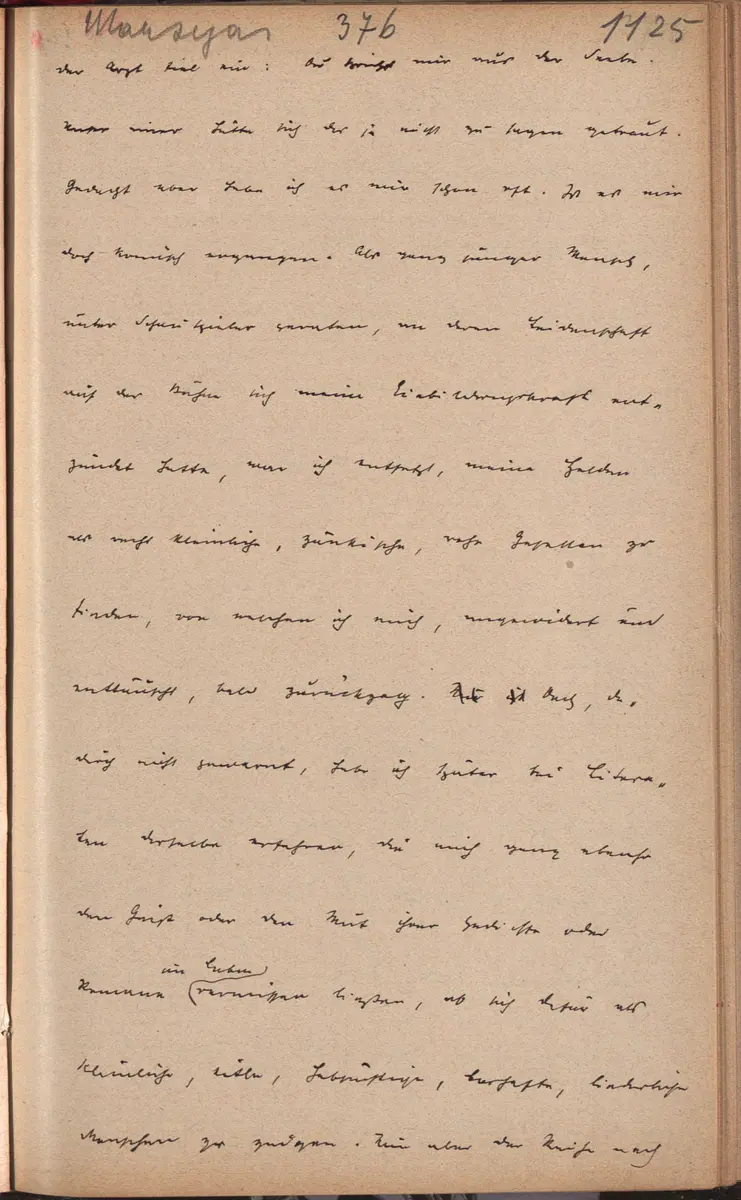 Marsyas 376 1125
der Arzt fiel ein: Du sprichst mir aus der Seele.
Unser einer hätte sich das ja nicht zu sagen getraut.
Gedacht aber habe ich es mir schon oft. Ist es mir
doch komisch ergangen. Als ganz junger Mensch,
unter Schauspieler geraten, an deren Leidenschaft
auf der Bühne sich meine Einbildungskraft ent-
zündet hatte, war ich entsetzt, meine Helden
als recht kleinliche, zänkische, rohe Gesellen zu
finden, von welchen ich mich, angewidert und
enttäuscht, bald zurückzog. Doch, da-
durch nicht gewarnt, habe ich später bei Litera-
ten dasselbe erfahren, die mich ganz ebenso
den Geist oder den Mut ihrer Gedichte oder
Romane im Leben vermissen ließen, ob sich dafür als
kleinliche, eitle, habsüchtige, boshafte, liederliche
Menschen zu zeigen. Nun aber der Reihe nach